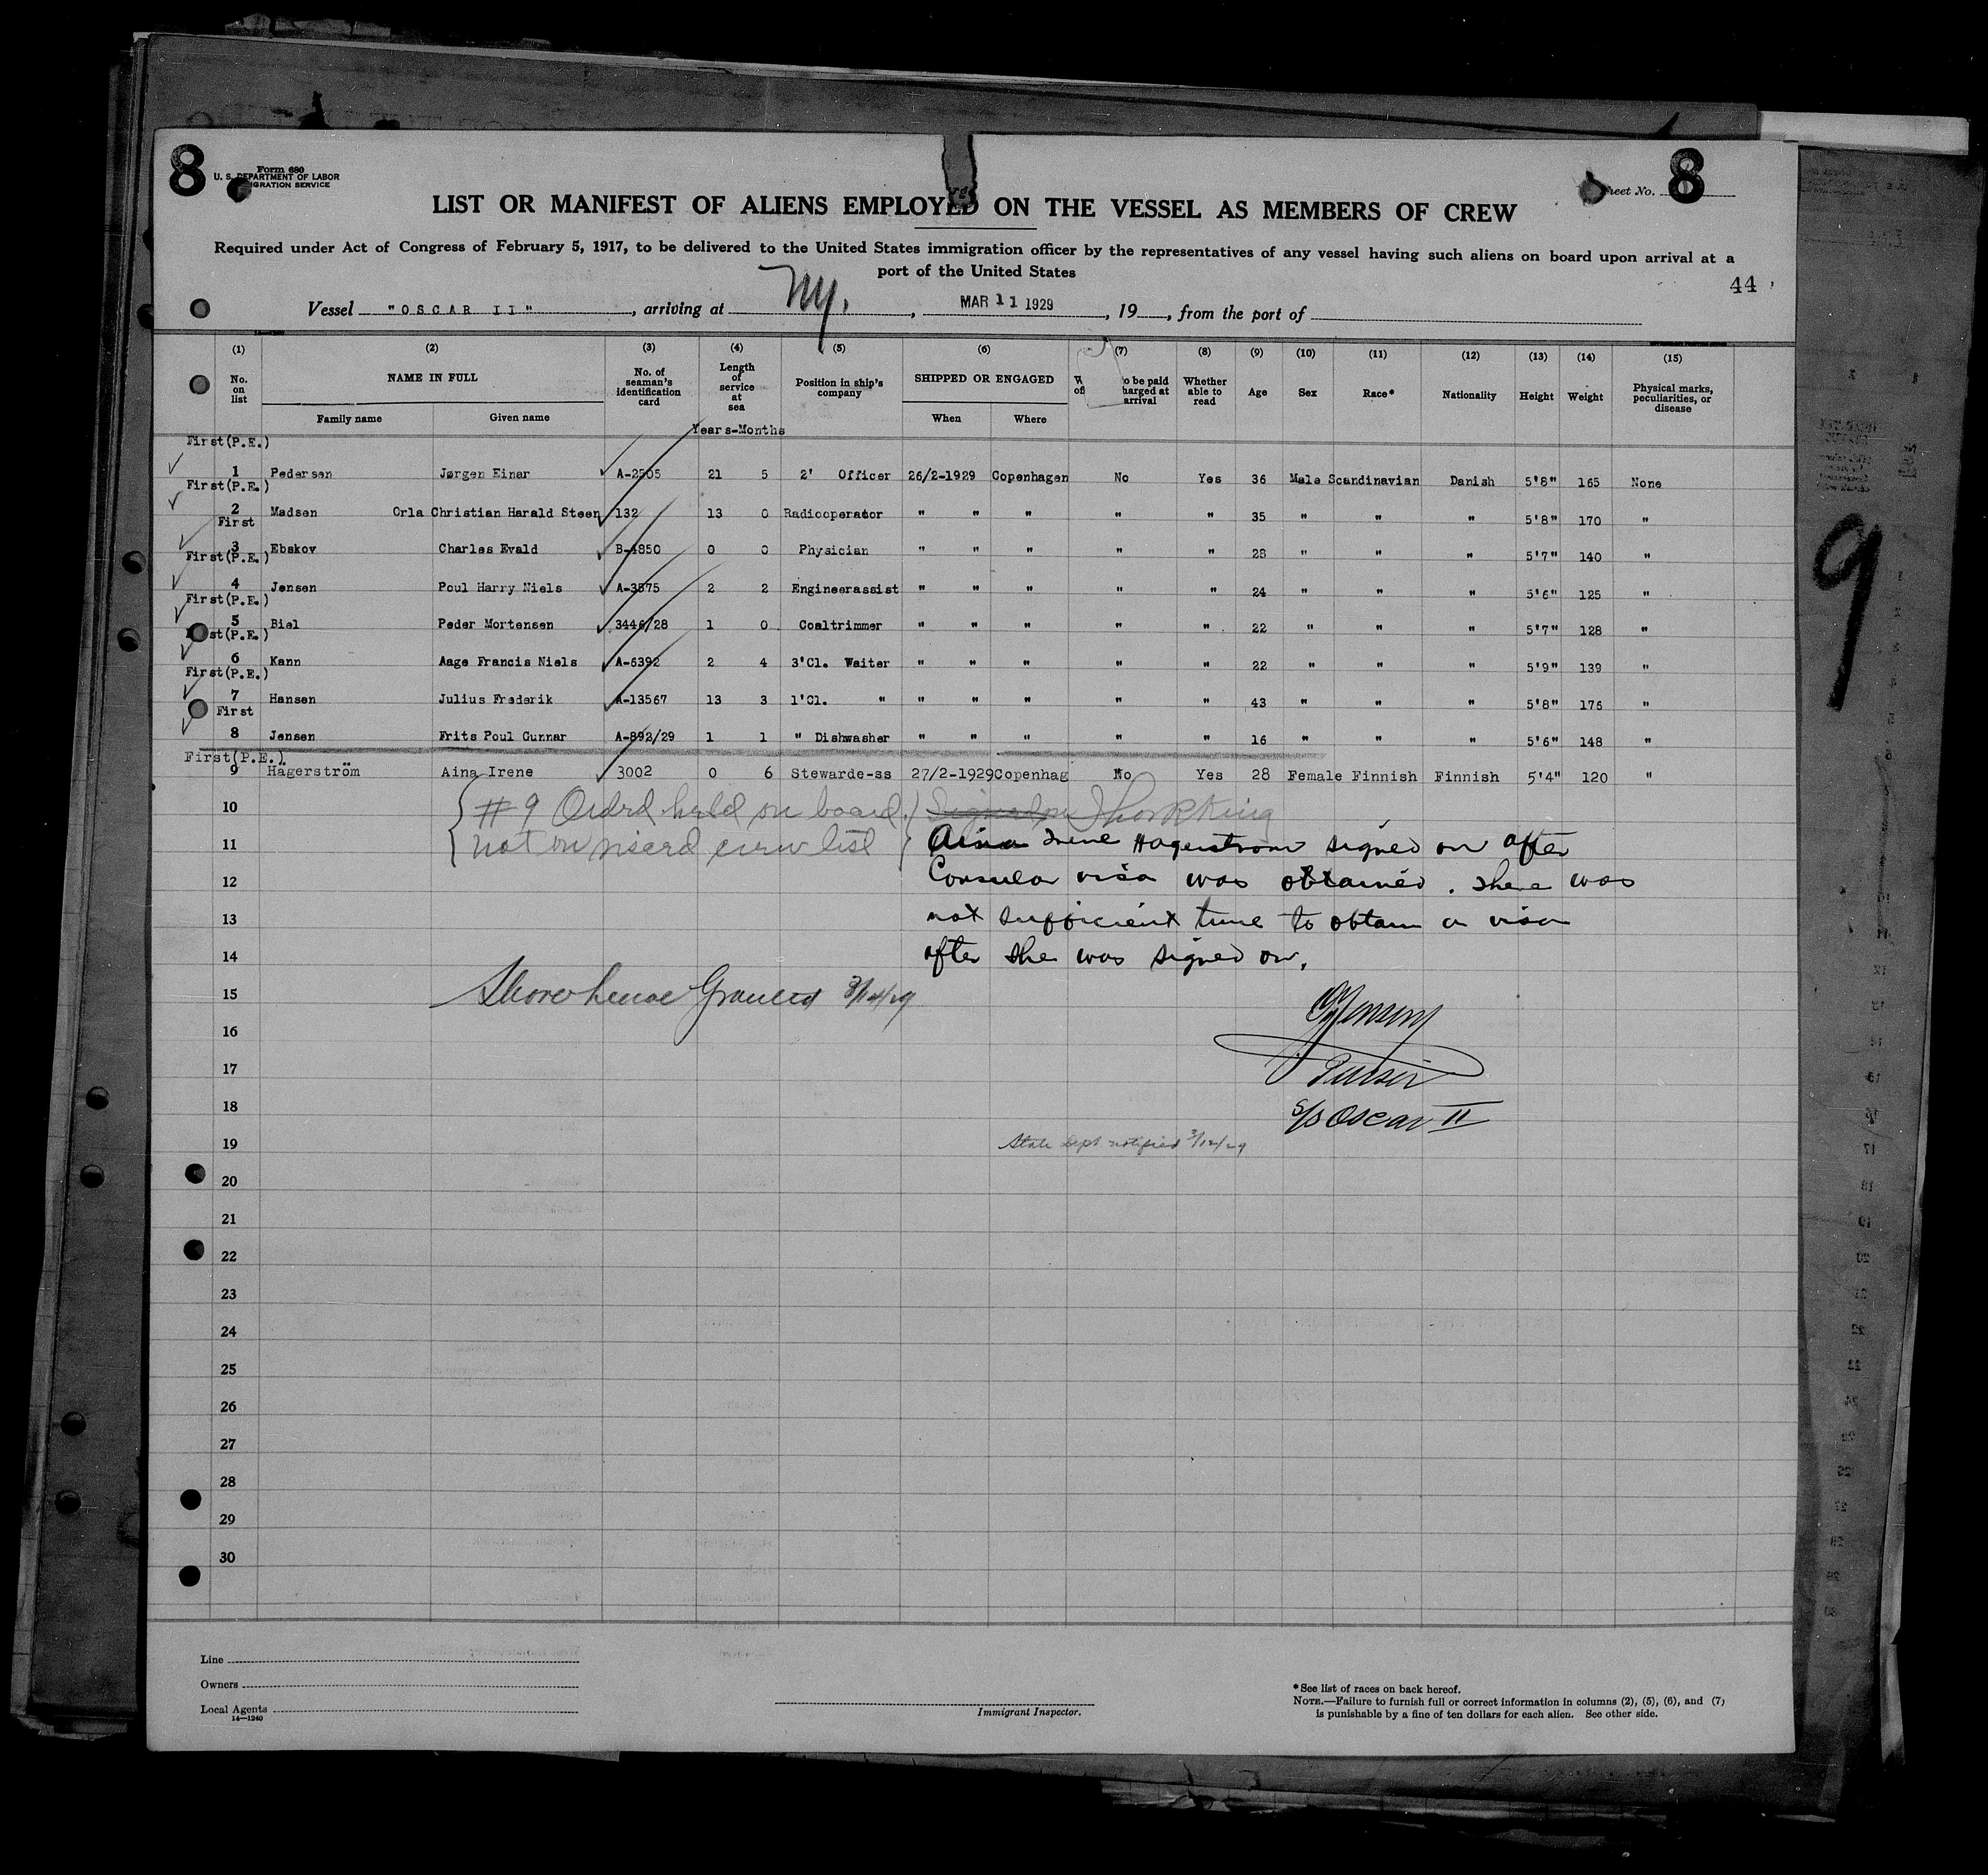 8
8
Form 680
U. S. DEPARTMENT OF LABOR
IGRATION SERVICE
eet No.
LIST OR MANIFEST OF ALIENS EMPLOYED ON THE VESSEL AS MEMBERS OF CREW
Required under Act of Congress of February 5, 1917, to be delivered to the United States immigration officer by the representatives of any vessel having such aliens on board upon arrival at a
port of the United States
44
Vessel "OSCAR II", arriving at NY., MAR 11 1929, 19, from the port of
(1) (2) (3) (4) (5) (6) (7) (8) (9) (10) (11) (12) (13) (14) (15)
No. on list NAME IN FULL Family name Given name No. of seaman's identification card Length of service at sea Position in ship's company SHIPPED OR ENGAGED When Where o be paid harged at arrival Whether able to read Age Sex Race* Nationality Height Weight Physical marks, peculiarities, or disease
Years-Months
First(P.E.)
1 Pedersen Jørgen Einar A-2505 21 5 2' Officer 26/2-1929 Copenhagen No Yes 36 Male Scandinavian Danish 5'8" 165 None
First(P.E.)
2 Madsen Orla Christian Harald Steen 132 13 0 Radiooperator " " " " " 35 " " " 5'8" 170 "
First
3 Ebskov Charles Evald B-4850 0 0 Physician " " " " " 28 " " " 5'7" 140 "
First(P.E.)
4 Jensen Poul Harry Niels A-3575 2 2 Engineerassist " " " " " 24 " " " 5'6" 125 "
First(P.E.)
5 Biel Peder Mortensen 3446/28 1 0 Coaltrimmer " " " " " 22 " " " 5'7" 128 "
st(P.E.)
6 Kann Aage Francis Niels A-6392 2 4 3'Cl. Waiter " " " " " 22 " " " 5'9" 139 "
First(P.E.)
7 Hansen Julius Frederik A-13567 13 3 1'Cl. " " " " " " 43 " " " 5'8" 176 "
First
8 Jensen Frits Poul Gunnar A-892/29 1 1 " Dishwasher " " " " " 16 " " " 5'6" 148 "
First(P.E.)
9 Hägerström Aina Irene 3002 0 6 Stewarde-ss 27/2-1929 Copenhag No Yes 28 Female Finnish Finnish 5'4" 120 "
10 #9 Ordrd held on board Signed on
11 not on visaed crew list Aina Irene Hagerstrom signed on after
12 Consular visa was obtained. There was
13 not sufficient time to obtain a visa
14 after she was signed on.
15 Shore leave Granted 3/12/29
16
17 Purser
18 S/S Oscar II
19 State Dept notified 3/12/29
20
21
22
23
24
25
26
27
28
29
30
9
Line
Owners
Local Agents
14—1240
Immigrant Inspector.
*See list of races on back hereof.
NOTE.—Failure to furnish full or correct information in columns (2), (5), (6), and (7)
is punishable by a fine of ten dollars for each alien. See other side.